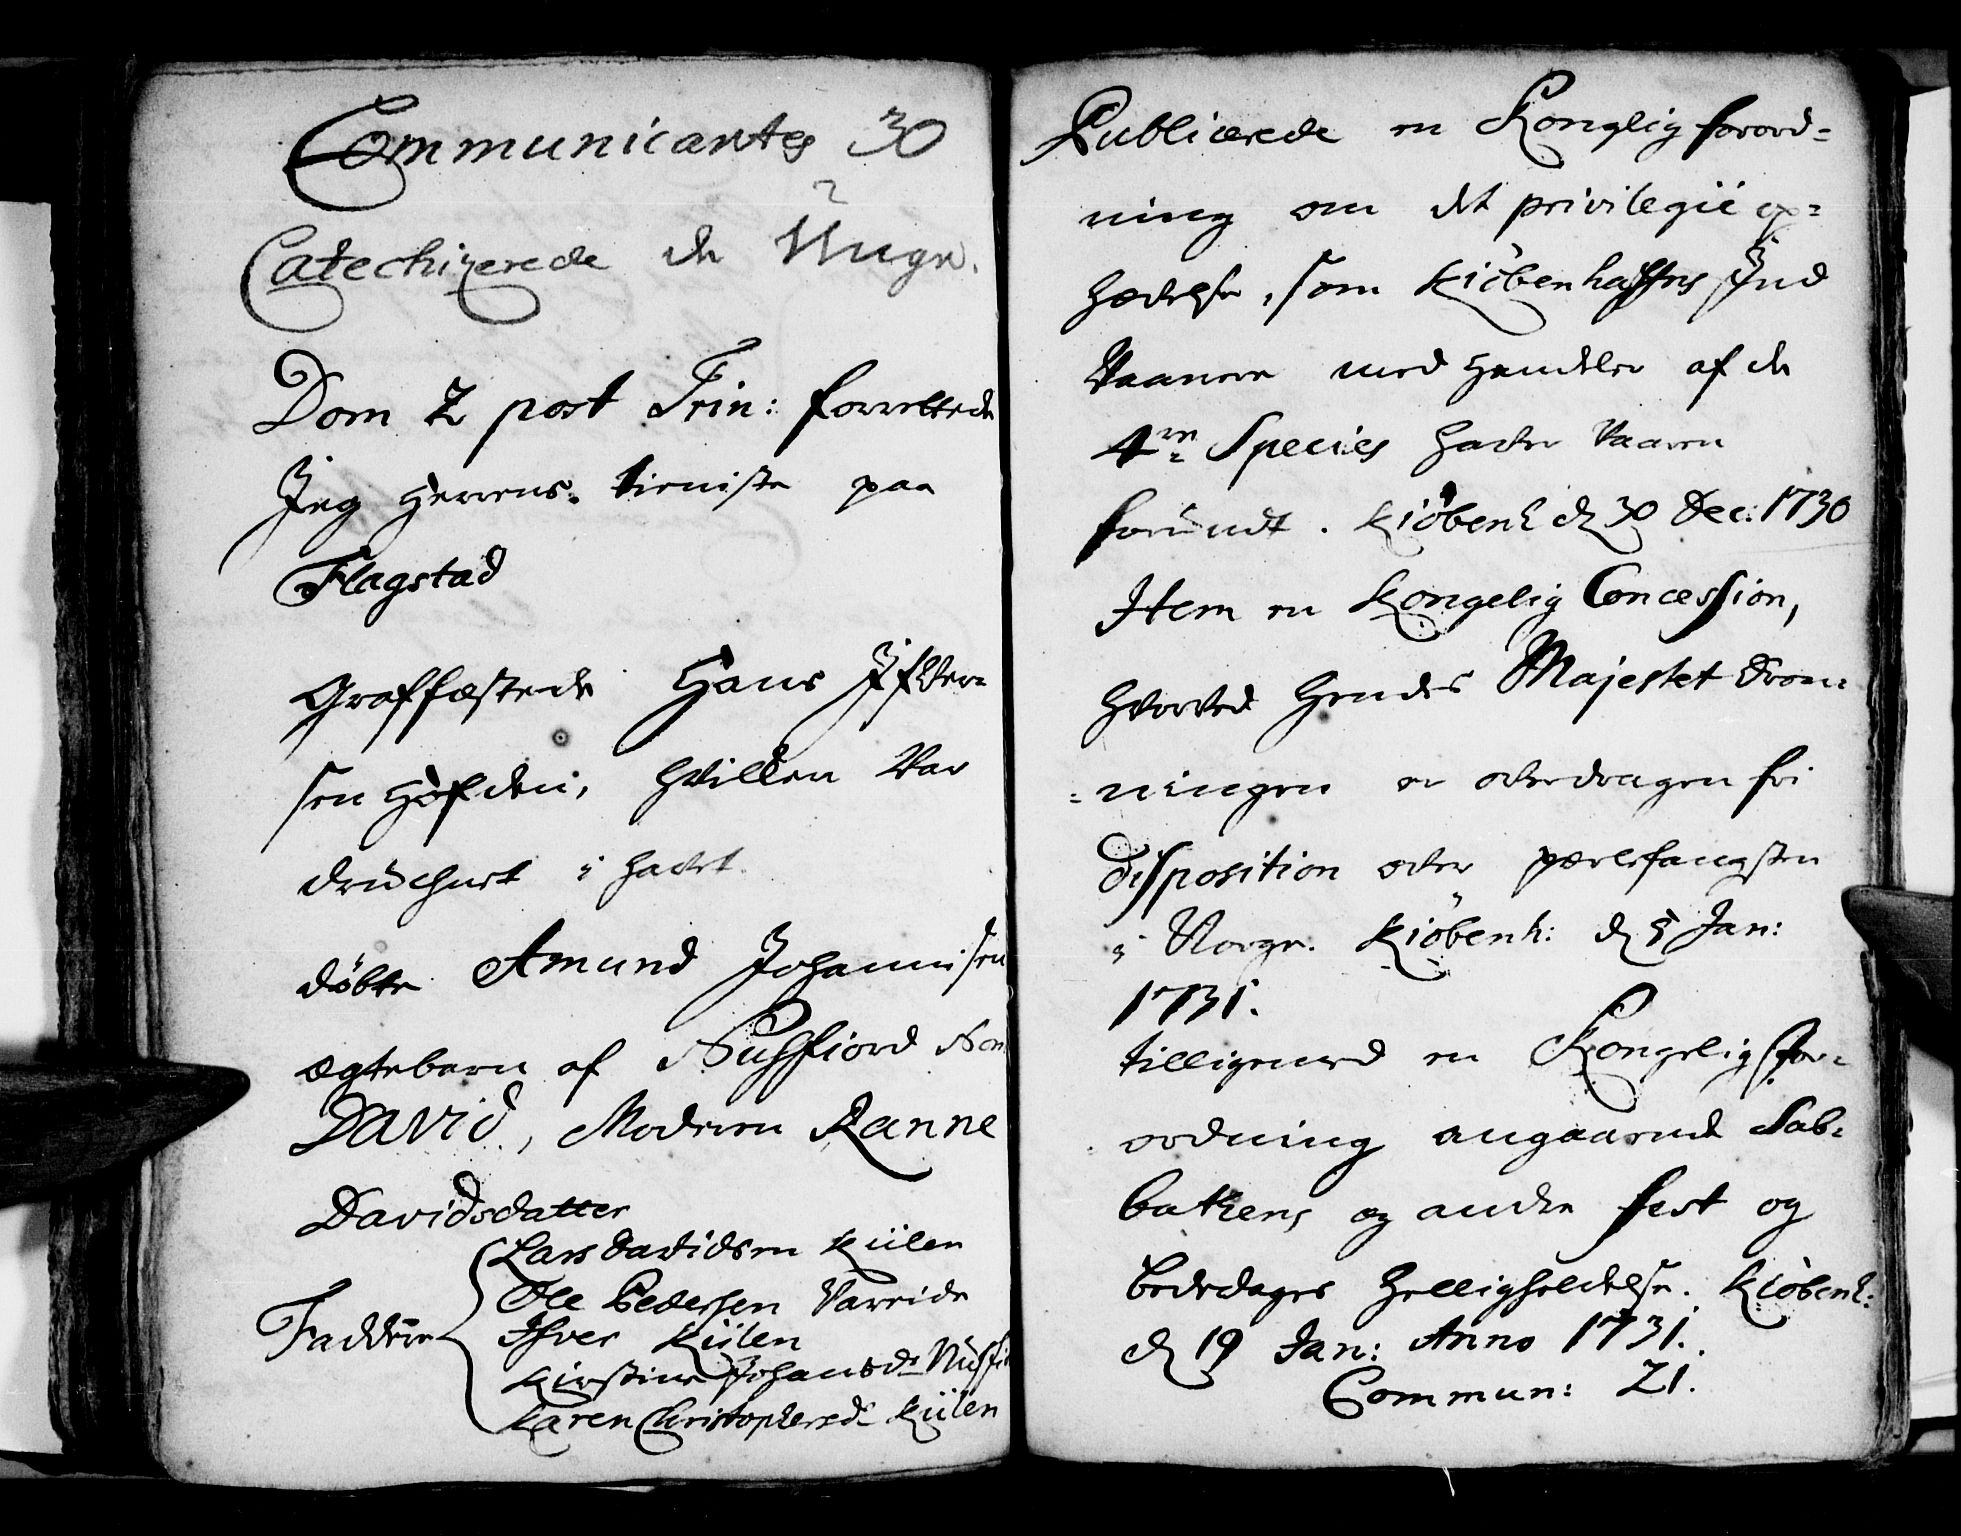 Communicantes 30
Catechizerede de Unge.
Dom 2 post Trin: forrettede
Jeg Herrens tieniste paa
Flagstad
Graffæstede Hans Ifver-
sen Höfden, hvilken var
druchnet i havet.
döbte Amund Johannisen
ægtebarn af Nusfiord Nom
David, Moderen Ranne
Davidsdatter
Lars Davidsen Kiilen
Ole Pedersen Vareide
Fadderne Ifver Kiilen
Kirstine Johansd: Nusfi
Karen Christophersd: Kiilen
Publicerede en Konglig forord=
ning om det privilegii op=
hævelse, som Kiöbenhaffns Ind
Vaanere med Handelen af de
4re Species hafver været
forundt. Kiöbenh d 30 Dec: 1730
Item en Kongelig Concession,
hvorved Hendes Majestet Dron=
=ningen er overdragen fri
disposition over perlefangsten
i Norge. Kiöbenh: d 5 Jan:
1731.
tilligemed en Kongelig for=
ordning angaaende Sab=
bathens og andre fest og
bededages helligholdelse. Kiöbenh:
d 19 Jan: Anno 1731.
Commun: 21.